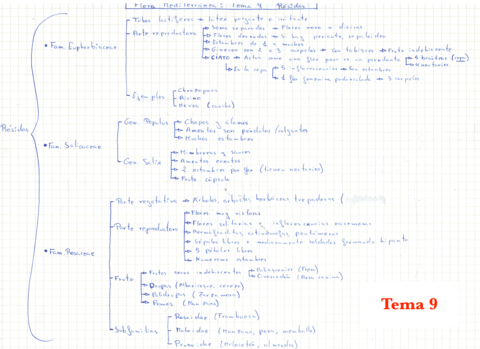 Flora Mediterránea: Tema 9 Rósidas
Rósidas
• Fam. Euphorbiaceae
Tubos lactíferos → Látex purgante e irritante
Parte reproductora
Sexos separados → Flores mono o dioicas
Flores desnudas → Si hay periantio, sepaloideo
Estambres de 1 a muchos
Gineceo con 2 o 3 carpelos → Con tabiques → Fruto indehiscente
CIATO → Actúa como una flor pero es un
5 brácteas (copa)
4 nectarios
En la copa
5 inflorescencias → Con estambres
1 flor femenina pedunculada → 3 carpelos
Ejemplos
Ricino
Hevea (caucho)
• Fam. Salicaceae
Gen. Populus
Chopos y álamos
Amentos son péndulos/colgantes
Muchos estambres
Gen. Salix
Mimbreras y sauces
Amentos erectos
2 estambres por flor (tienen nectarios)
Fruto cápsula
• Fam. Rosaceae
Parte vegetativa → Árboles, arbustos, herbáceas, trepadoras (
Parte reproductora
Flores muy vistosas
Flores solitarias e inflorescencias racemosas
Hermafroditas, actinomorfas, pentámeras
Sépalos libres o medianamente soldados formando hipanto
5 pétalos libres
Numerosos estambres
Fruto
Frutos secos indehiscentes
Poliaquenios (Fresa)
Cinorrodón (Rosa canina)
Drupas (Albaricoque, cerezo)
Polidrupas (Zarzamora)
Pomos (Manzana)
Subfamilias
Rosoidae (Frambuesa)
Maloidae (Manzana, pera, membrillo)
Prunoidae (Melocotón, almendra)
Tema 9